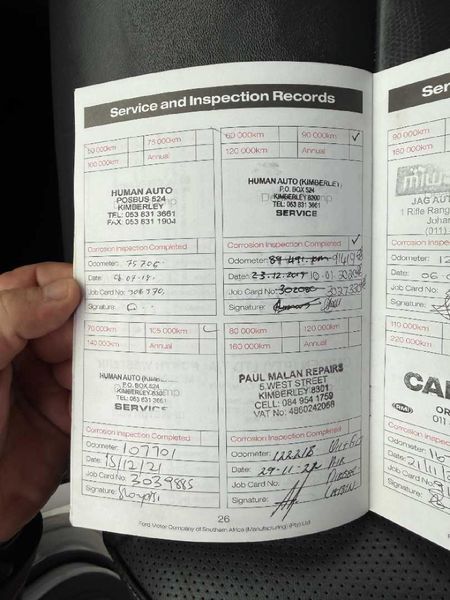 Service and Inspection Records
50 000km 75 000km
100 000km Annual
HUMAN AUTO
POSBUS 524
KIMBERLEY
TEL: 053 831 3661
FAX: 053 831 1904
Corrosion Inspection Completed
Odometer: 75706
Date:
Job Card No:
Signature:
60 000km 90 000km ✓
120 000km Annual
HUMAN AUTO (KIMBERLEY)
P.O. BOX 524
KIMBERLEY 8300
TEL: 053 831 3661
SERVICE
Corrosion Inspection Completed ✓
Odometer:
Date: 23.12.2019
Job Card No:
Signature:
70 000km 105 000km
140 000km Annual
HUMAN AUTO
P.O. BOX 524
KIMBERLEY 8300
TEL: 053 831 3661
SERVICE
Corrosion Inspection Completed
Odometer: 107701
Date: 15/12/21
Job Card No: 3039885
Signature:
80 000km 120 000km
160 000km Annual
PAUL MALAN REPAIRS
5 WEST STREET
KIMBERLEY 8301
CELL: 084 954 1759
VAT No: 4860242058
Corrosion Inspection Completed
Odometer: 122218
Date: 29-11-22
Job Card No:
Signature:
26
Ford Motor Company of Southern Africa (Manufacturing) (Pty) Ltd
Ser
90 000km
180 000km
JAG AUT
1 Rifle Rang
Joha
(011)
Corrosion Inspe
Odometer: 12
Date: 06
Job Card No:
Signature:
110 000km
220 000km
CA
OR
011
Corrosion Inspe
Odometer: 16
Date: 21/11
Job Card No:
Signature: